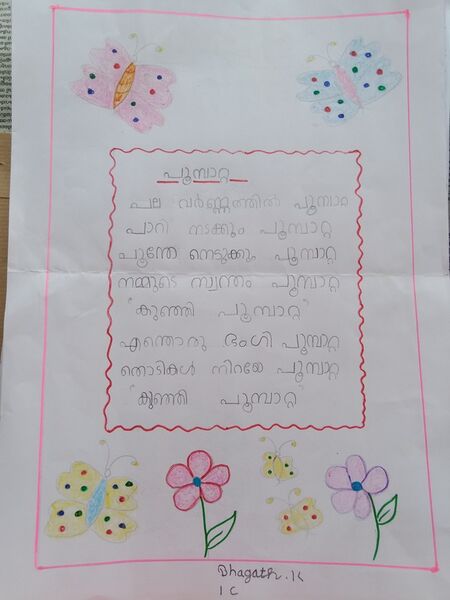 പൂമ്പാറ്റ
പല വർണ്ണത്തിൽ പൂമ്പാറ്റ
പാറി നടക്കും പൂമ്പാറ്റ
പൂന്തേ നെടുക്കും പൂമ്പാറ്റ
നമ്മുടെ സ്വന്തം പൂമ്പാറ്റ
"കുഞ്ഞി പൂമ്പാറ്റ"
എന്തൊരു ഭംഗി പൂമ്പാറ്റ
തൊടികൾ നിറയേ പൂമ്പാറ്റ
"കുഞ്ഞി പൂമ്പാറ്റ"
Bhagath.K
1 C